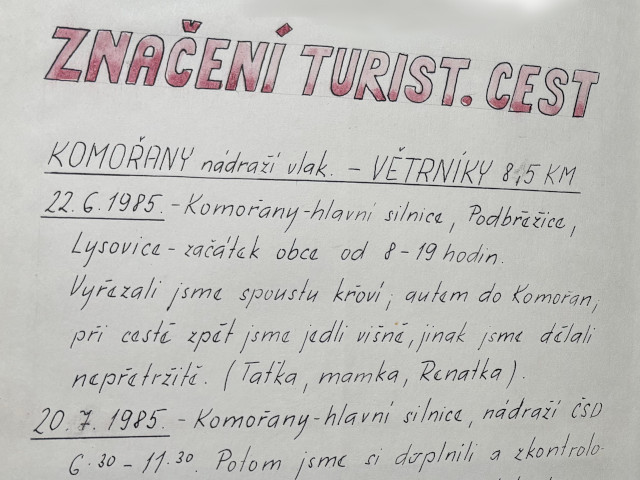 ZNAČENÍ TURIST. CEST
KOMOŘANY nádraží vlak. - VĚTRNÍKY 8,5 KM
22.6.1985. - Komořany-hlavní silnice, Podbřežice,
Lysovice - začátek obce od 8-19 hodin.
Vyřezali jsme spoustu křoví, autem do Komořan,
při cestě zpět jsme jedli višně, jinak jsme dělali
nepřetržitě. (Taťka, mamka, Renatka).
20.7.1985. - Komořany-hlavní silnice, nádraží ČSD
6.30 - 11.30. Potom jsme si doplnili a zkontrolo-